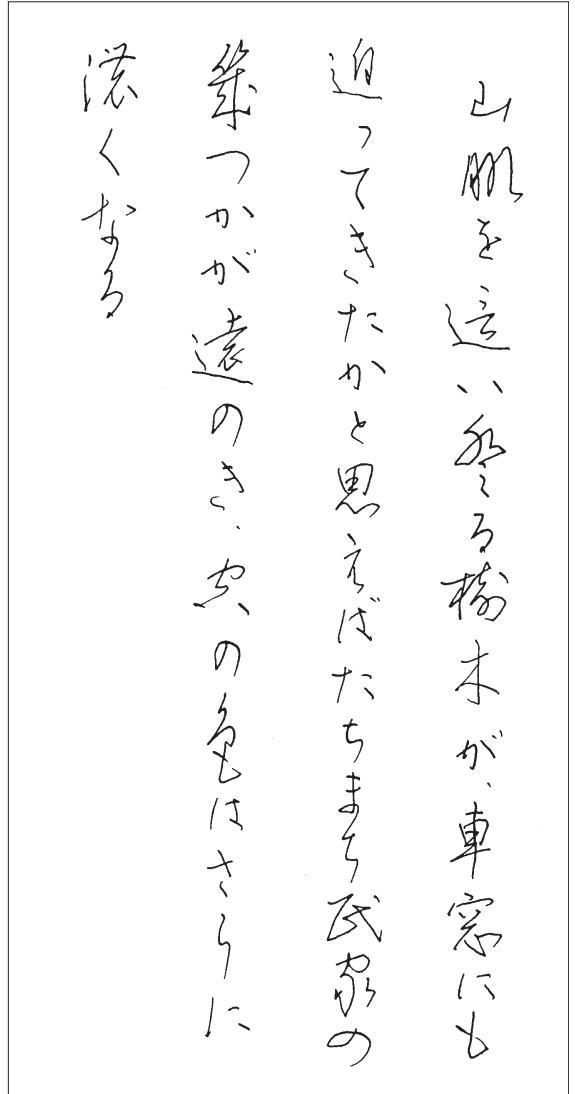 山肌を這い登る樹木が、車窓にも
迫ってきたかと思えばたちまち民家の
幾つかが遠のき、空の色はさらに
濃くなる